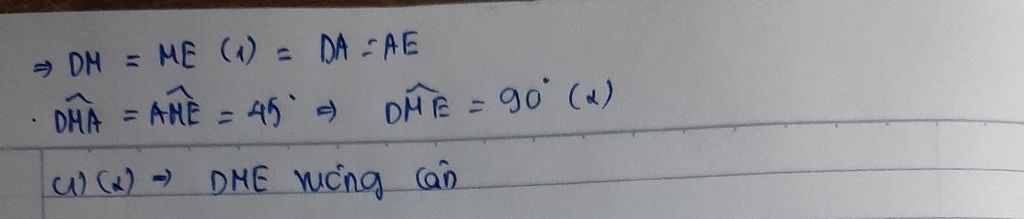 ⇒ DM = ME (1) = DA = AE
· $\widehat{DMA}$ = $\widehat{AME}$ = 45° ⇒ $\widehat{DME}$ = 90° (2)
(1) (2) ⇒ DME vuông cân